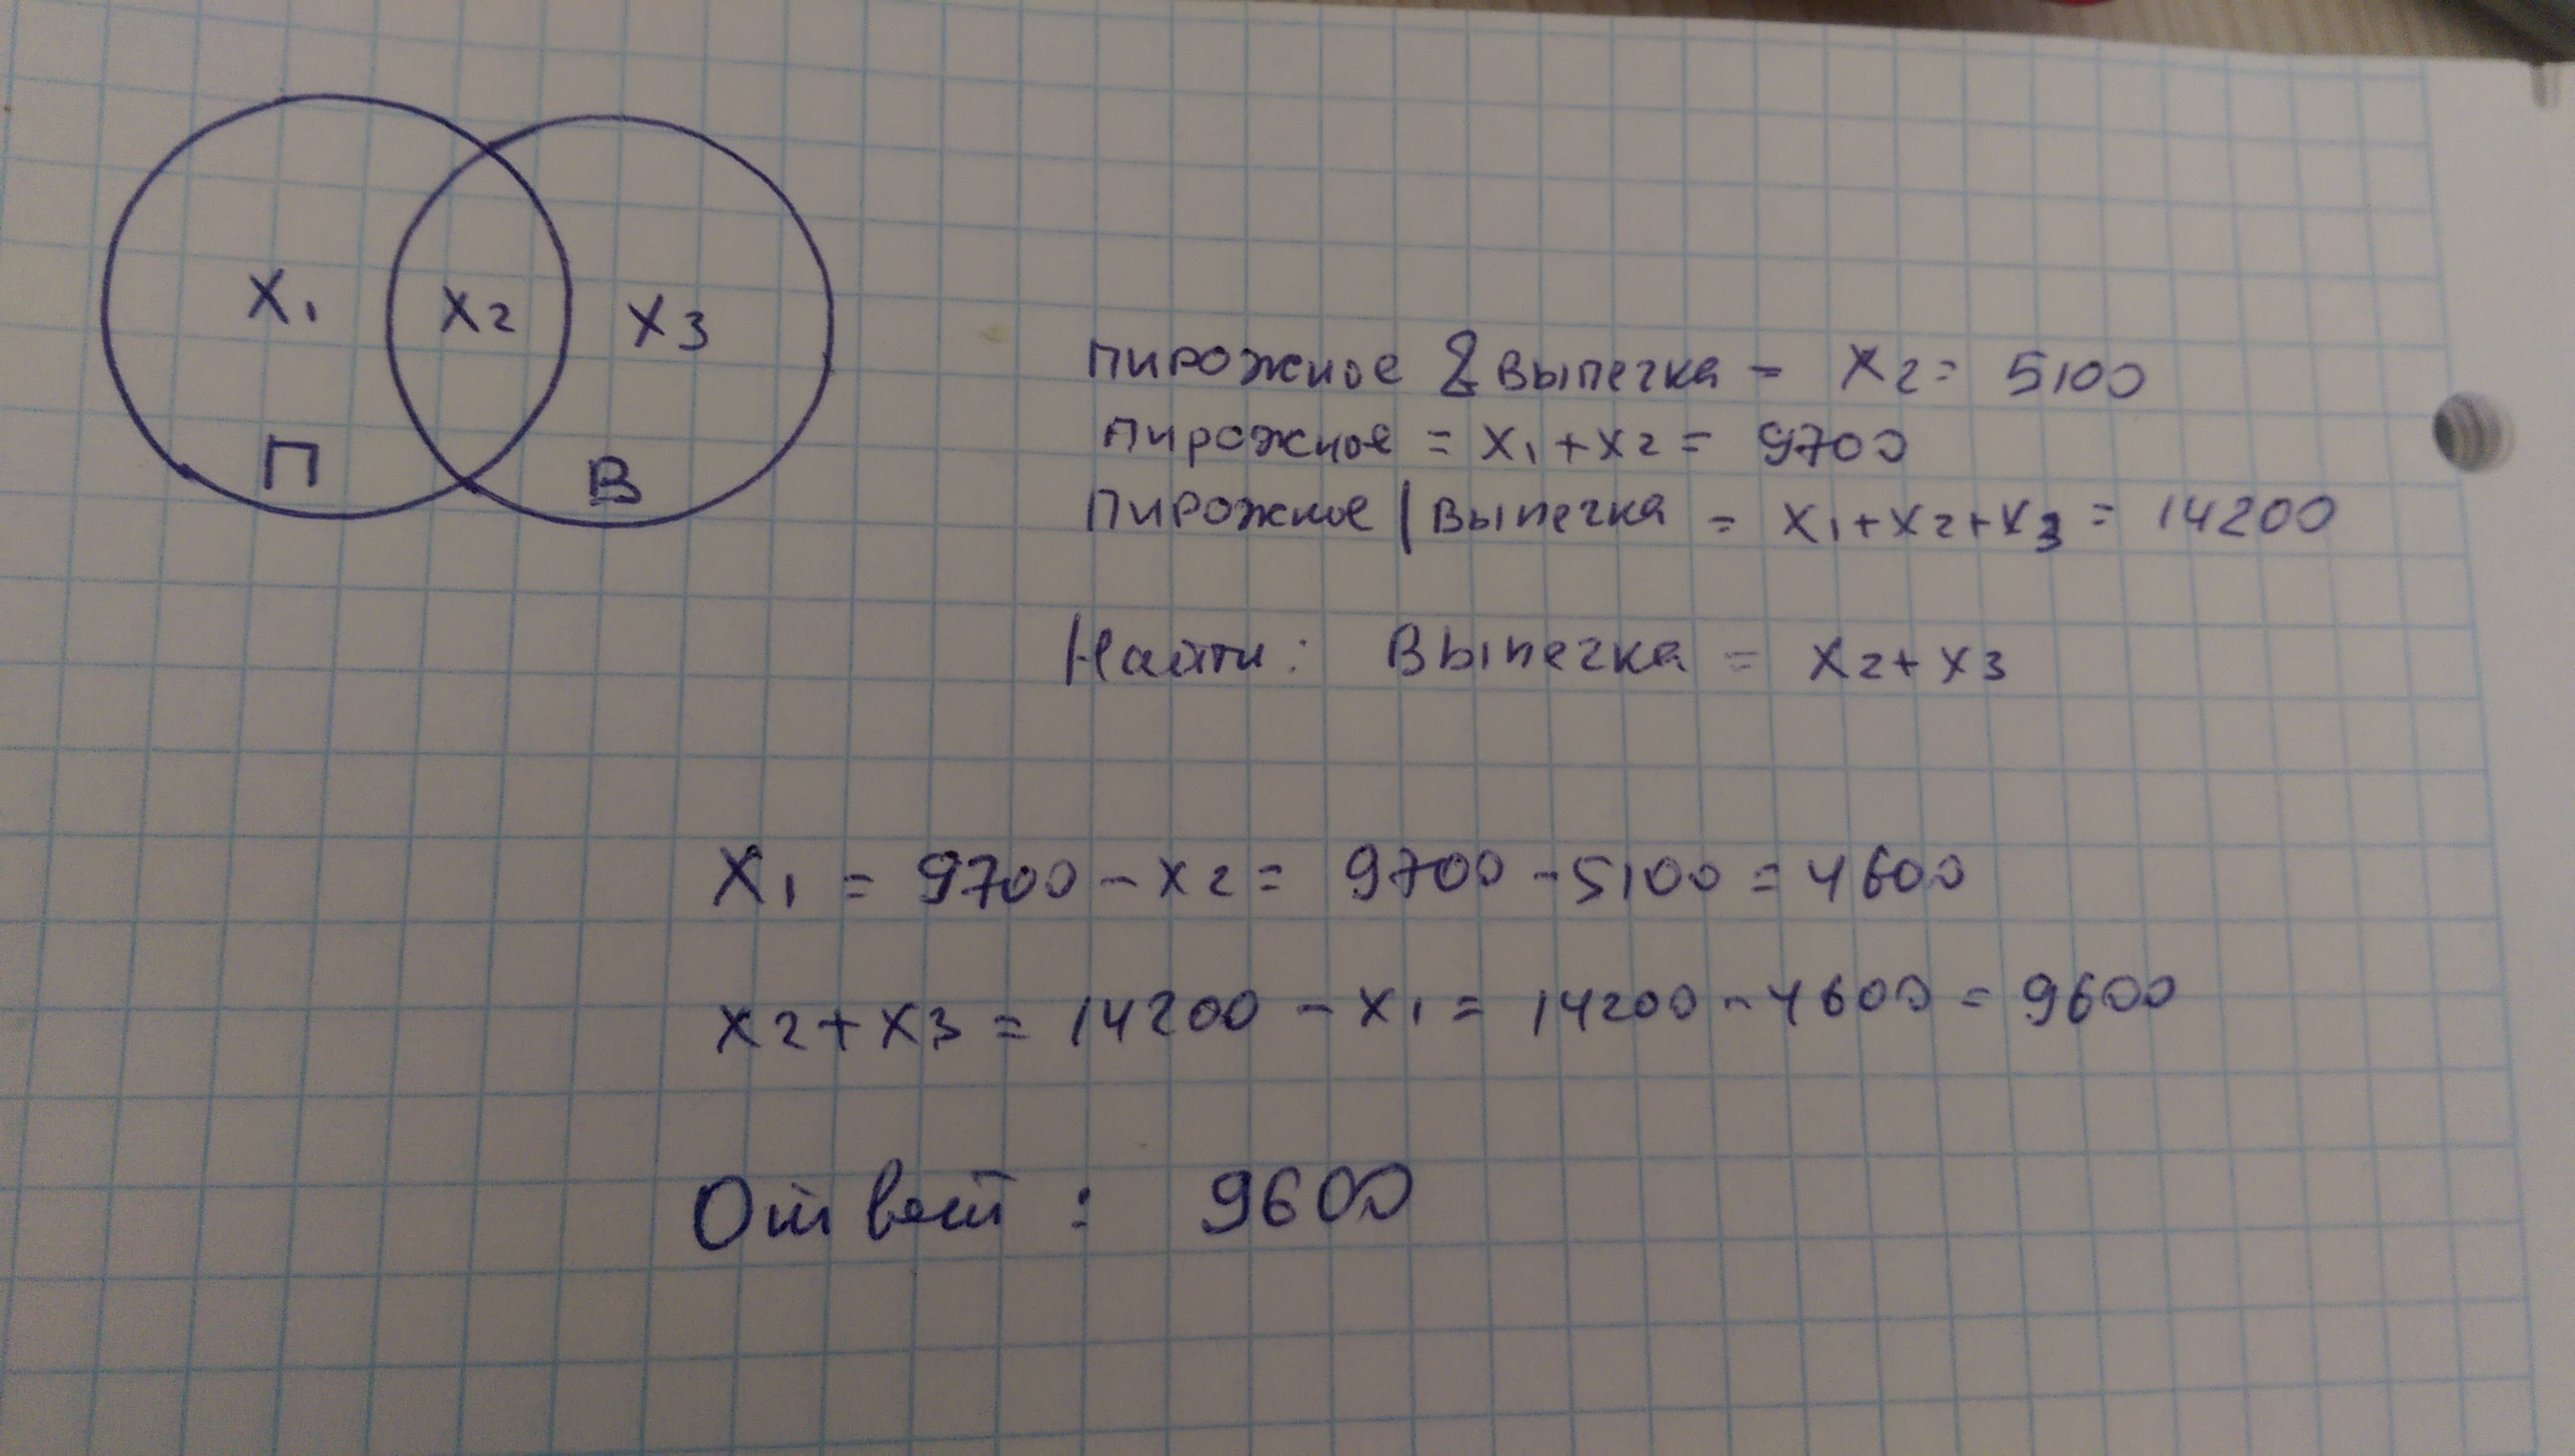 X1 X2 X3
П В
пирожное & выпечка - X2 = 5100
пирожное = X1 + X2 = 9700
пирожное | выпечка = X1 + X2 + X3 = 14200
Найти: Выпечка = X2 + X3
X1 = 9700 - X2 = 9700 - 5100 = 4600
X2 + X3 = 14200 - X1 = 14200 - 4600 = 9600
Ответ: 9600